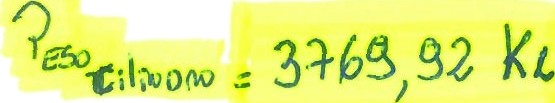 PESO cilindro = 3769,92 Kg